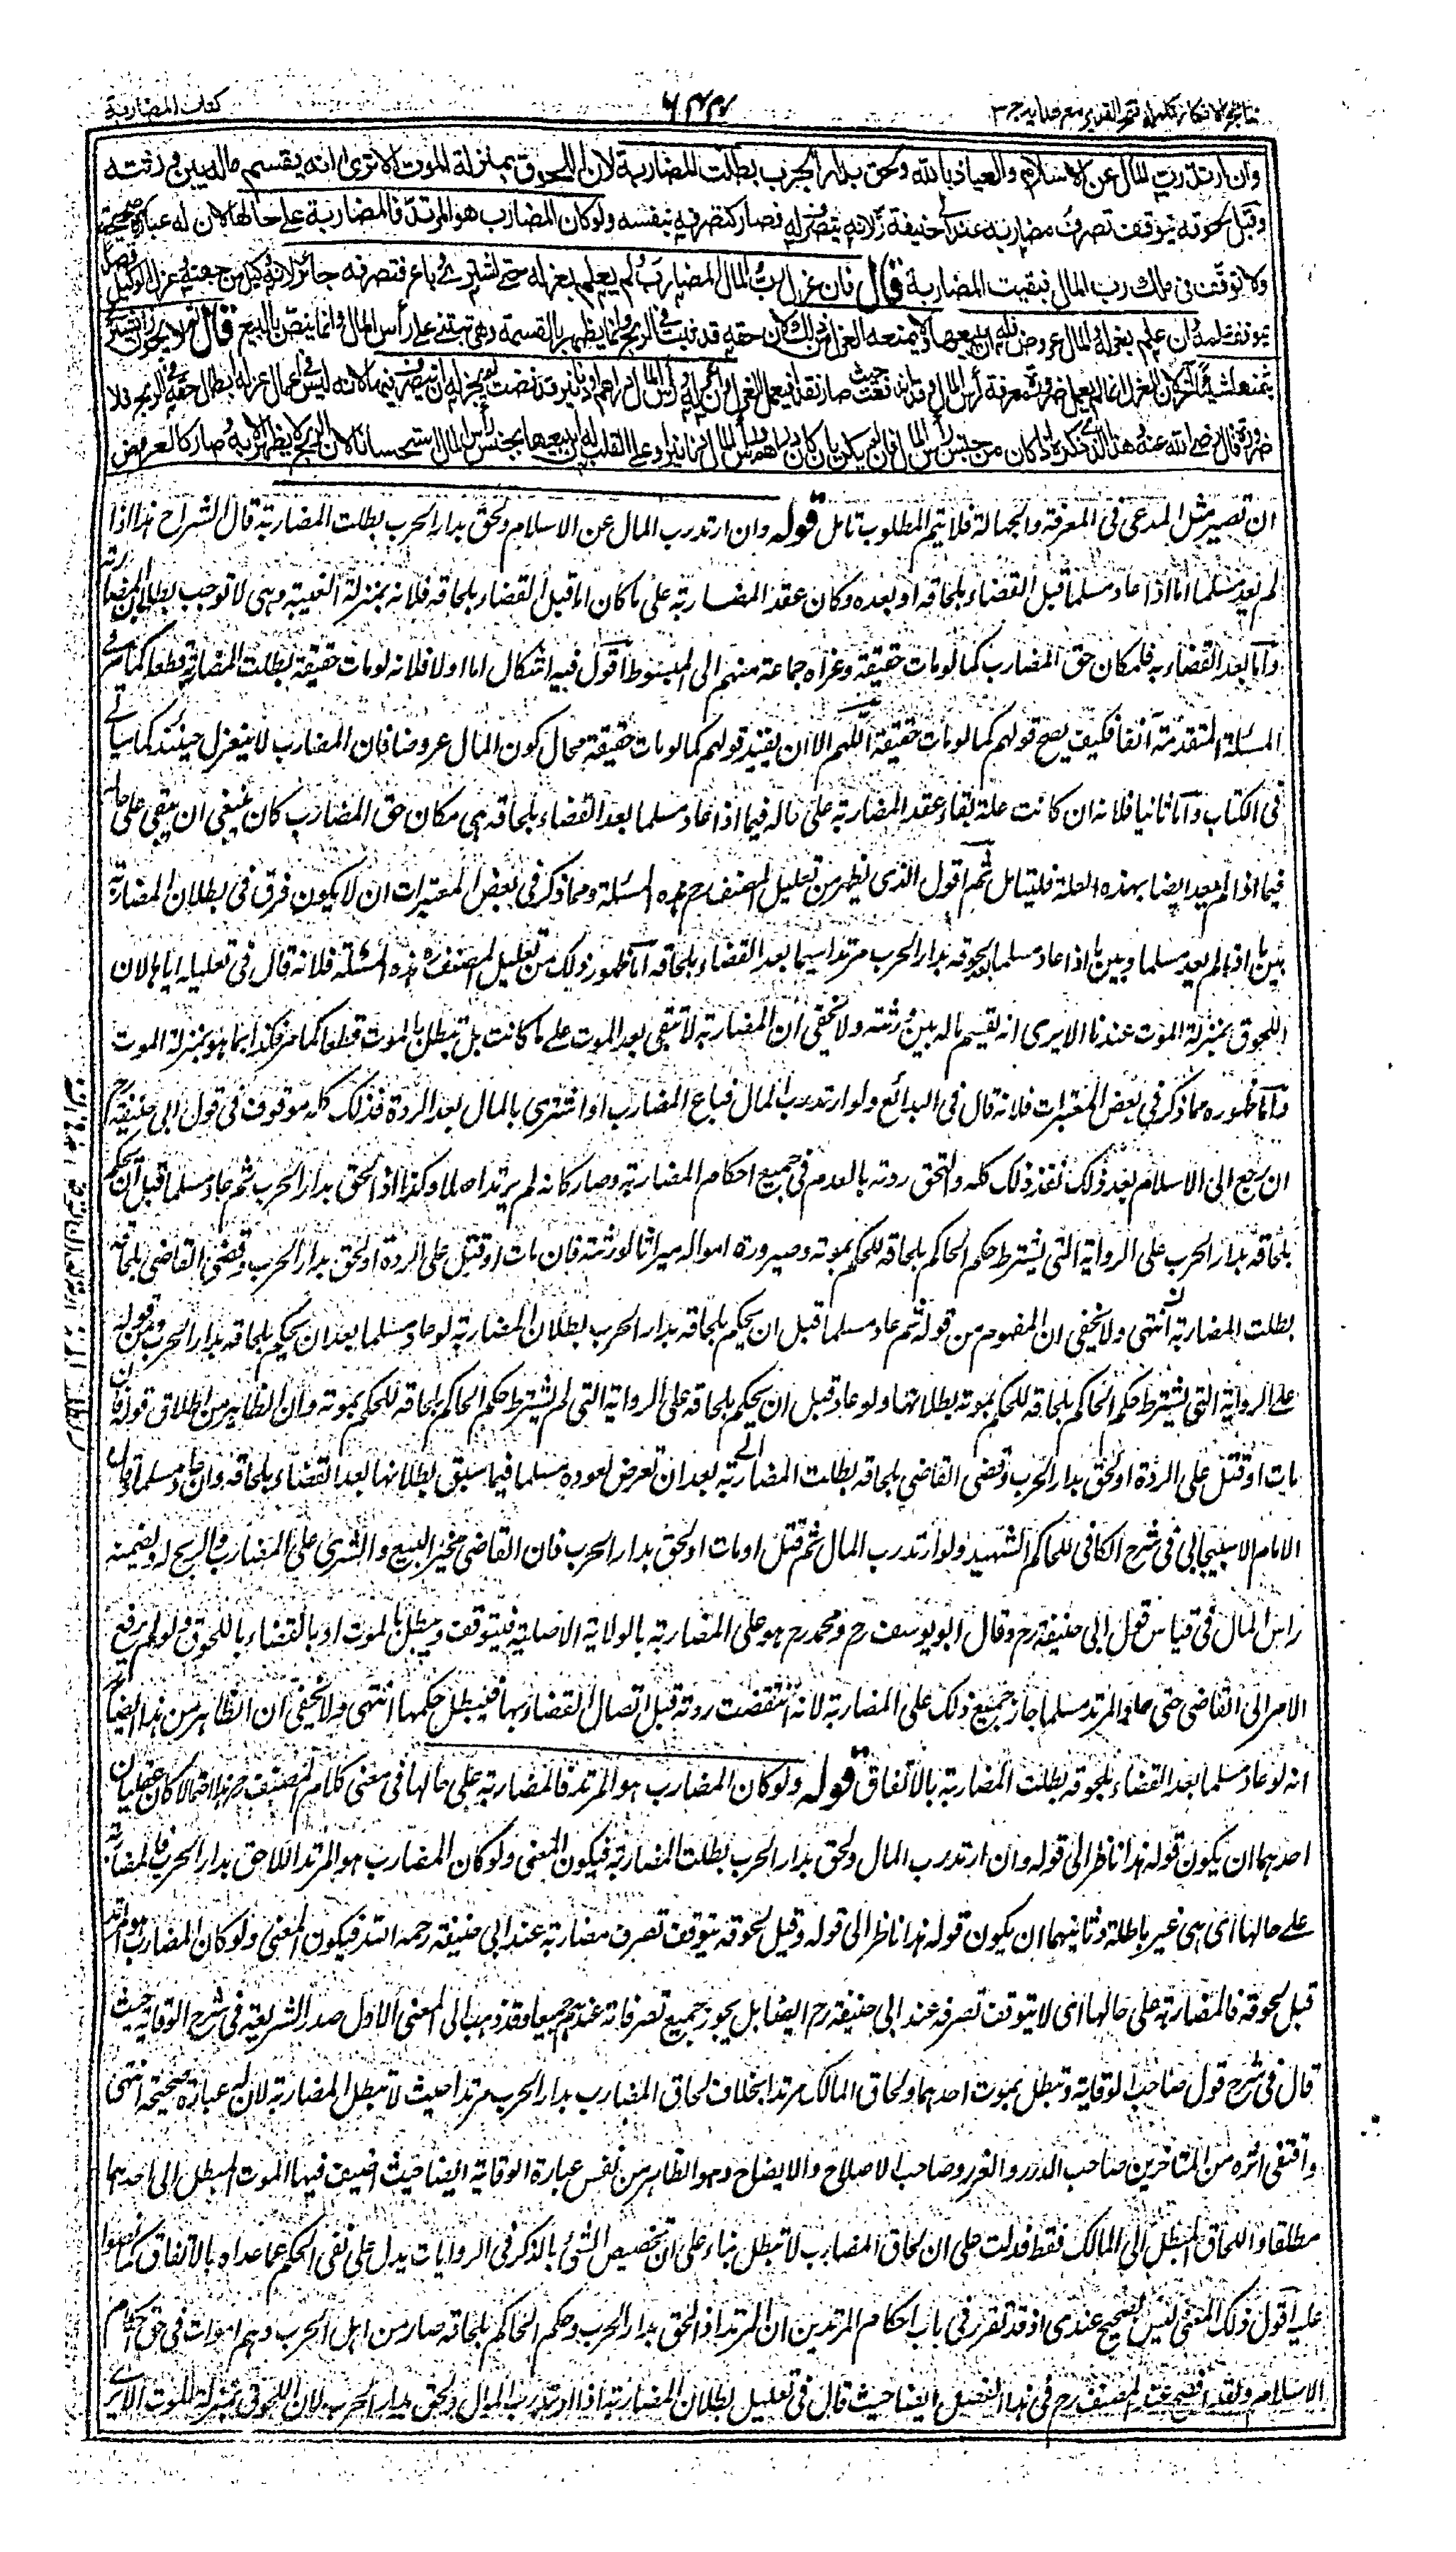 نتائج الافكار تكملہ فتح القدير مع ہدايہ ج ٣
كتاب المضاربة
وان ارتد رب المال عن الاسلام والعياذ بالله ولحق بدار الحرب بطلت المضاربة لان اللحوق بمنزلة الموت الا ترى انه يقسم ماله بين ورثته
وقبل لحوقه يتوقف تصرف مضاربه عند ابي حنيفة رح لانه يتصرف له فصار كتصرفه بنفسه ولو كان المضارب هو المرتد فالمضاربة على حالها لان له عبارة صحيحة
ولا توقف في ملك رب المال فبقيت المضاربة قال فان عزل رب المال المضارب ولم يعلم بعزله حتى اشترى وباع فتصرفه جائز لانه وكيل من جهته وعزل الوكيل قصدا
يتوقف على علمه وان علم بعزله والمال عروض فله ان يبيعها ولا يمنعه العزل من ذلك لان حقه قد ثبت في الربح وانما يظهر بالقسمة وهي تبتني على رأس المال وانما ينض بالبيع قال ثم لا يجوز ان يشتري
بثمنها شيئا آخر لان العزل انما لم يعمل ضرورة معرفة رأس المال وقد اندفعت حيث صار نقدا فيعمل العزل فان عزله ورأس المال دراهم او دنانير قد نضت لم يجز له ان يتصرف فيها لانه ليس في اعمال عزله ابطال حقه في الربح فلا
ضرورة قال رضي الله عنه وهذا الذي ذكره اذا كان من جنس رأس المال فان لم يكن بان كان دراهم ورأس المال دنانير او على القلب له ان يبيعها بجنس رأس المال استحسانا لان الربح لا يظهر الا به وصار كالعروض
ان تصير مثل المدعى في المعرفة والجهالة فلا يتم المطلوب تامل قوله وان ارتد رب المال عن الاسلام ولحق بدار الحرب بطلت المضاربة قال الشراح هذا اذا
لم يعد مسلما اما اذا عاد مسلما قبل القضاء بلحاقه او بعده وكان عقد المضاربة على ما كان اما قبل القضاء بلحاقه فلانه بمنزلة الغيبة وهي لا توجب بطلان المضاربة
واما بعد القضاء به فلمكان حق المضارب كما لو مات حقيقة وعزاه جماعة منهم الى المبسوط اقول فيه اشكال اما اولا فلانه لو مات حقيقة بطلت المضاربة قطعا كما مر في
المسئلة المتقدمة آنفا فكيف يصح قولهم كما لو مات حقيقة اللهم الا ان يقيد قولهم كما لو مات حقيقة بحال كون المال عروضا فان المضارب لا ينعزل حينئذ كما سياتي
في الكتاب واما ثانيا فلانه ان كانت علة بقاء عقد المضاربة على حاله فيما اذا عاد مسلما بعد القضاء بلحاقه هي مكان حق المضارب كان ينبغي ان يبقى على حاله
فيما اذا لم يعد ايضا بهذه العلة فليتامل ثم اقول الذي يظهر من تعليل المصنف رح هذه المسئلة ومما ذكر في بعض المعتبرات ان لا يكون فرق في بطلان المضاربة
بين ما اذا لم يعد مسلما وبين ما اذا عاد مسلما بعد لحوقه بدار الحرب مرتدا سيما بعد القضاء بلحاقه اما ظهور ذلك من تعليل المصنف ره هذه المسئلة فلانه قال في تعليله اياها لان
اللحوق بمنزلة الموت عندنا الا يرى انه يقسم ماله بين ورثته ولا يخفى ان المضاربة لا تبقى بعد الموت على ما كانت بل تبطل بالموت قطعا كما مر فكذا بما هو بمنزلة الموت
واما ظهوره مما ذكر في بعض المعتبرات فلانه قال في البدائع ولو ارتد رب المال فباع المضارب او اشترى بالمال بعد الردة فذلك كله موقوف في قول ابي حنيفة رح
ان رجع الى الاسلام بعد ذلك نفذ ذلك كله والتحق ردته بالعدم في جميع احكام المضاربة وصار كانه لم يرتد اصلا وكذا اذا لحق بدار الحرب ثم عاد مسلما قبل ان يحكم
بلحاقه بدار الحرب على الرواية التي يشترط حكم الحاكم بلحاقه للحكم بموته وصيرورة امواله ميراثا لورثته فان مات او قتل على الردة او لحق بدار الحرب وقضى القاضي بلحاقه
بطلت المضاربة انتهى ولا يخفى ان المفهوم من قوله ثم عاد مسلما قبل ان يحكم بلحاقه بدار الحرب بطلان المضاربة لو عاد مسلما بعد ان يحكم بلحاقه بدار الحرب ومن قوله
على الرواية التي يشترط حكم الحاكم بلحاقه للحكم بموته بطلانها ولو عاد قبل ان يحكم بلحاقه على الرواية التي لم يشترط حكم الحاكم بلحاقه للحكم بموته وان الظاهر من اطلاق قوله فان
مات او قتل على الردة او لحق بدار الحرب وقضى القاضي بلحاقه بطلت المضاربة بعد ان تعرض لعوده مسلما فيما سبق بطلانها بعد القضاء بلحاقه وان عاد مسلما وقال
الامام الاسبيجابي في شرح الكافي للحاكم الشهيد ولو ارتد رب المال ثم قتل او مات او لحق بدار الحرب فان القاضي يجيز البيع والشرى على المضارب والربح له ويضمنه
راس المال في قياس قول ابي حنيفة رح وقال ابو يوسف رح ومحمد رح هو على المضاربة بالولاية الاصلية فيتوقف ويبطل بالموت او بالقضاء باللحوق ولو لم يرفع
الامر الى القاضي حتى عاد المرتد مسلما جاز جميع ذلك على المضاربة لانه انتقضت ردته قبل اتصال القضاء بها فيبطل حكمها انتهى ولا يخفى ان الظاهر من هذا ايضا
انه لو عاد مسلما بعد القضاء بلحوقه بطلت المضاربة بالاتفاق قوله ولو كان المضارب هو المرتد فالمضاربة على حالها في معنى كلام المصنف رح هذا احتمالان عقليان
احدهما ان يكون قوله هذا ناظرا الى قوله وان ارتد رب المال ولحق بدار الحرب بطلت المضاربة فيكون المعنى ولو كان المضارب هو المرتد اللاحق بدار الحرب فالمضاربة
على حالها اى هي غير باطلة وثانيهما ان يكون قوله هذا ناظرا الى قوله وقبل لحوقه يتوقف تصرف مضاربة عند ابي حنيفة رحمه الله فيكون المعنى ولو كان المضارب هو المرتد
قبل لحوقه فالمضاربة على حالها اى لا يتوقف تصرفه عند ابي حنيفة رح ايضا بل يجوز جميع تصرفاته عندهم جميعا وقد ذهب الى المعنى الاول صدر الشريعة في شرح الوقاية حيث
قال في شرح قول صاحب الوقاية وتبطل بموت احدهما ولحاق المالك مرتدا بخلاف لحاق المضارب بدار الحرب مرتدا حيث لا تبطل المضاربة لان له عبارة صحيحة انتهى
واقتفى اثره من المتاخرين صاحب الدرر والغرر وصاحب الاصلاح والايضاح وهو الظاهر من نفس عبارة الوقاية ايضا حيث اضيف فيها الموت المبطل الى احدهما
مطلقا واللحاق المبطل الى المالك فقط فدلت على ان لحاق المضارب لا تبطل بناء على ان تخصيص الشئ بالذكر في الروايات يدل على نفى الحكم عما عداه بالاتفاق كما نصوا
عليه اقول ذلك المعنى ليس بصحيح عندى اذ قد تقرر في باب احكام المرتدين ان المرتد اذا لحق بدار الحرب وحكم الحاكم بلحاقه صار من اهل الحرب وهم اموات في حق احكام
الاسلام ولقد افصح عنه المصنف رح في هذا الفصل ايضا حيث قال في تعليل بطلان المضاربة اذا ارتد رب المال ولحق بدار الحرب لان اللحوق بمنزلة الموت الا يرى